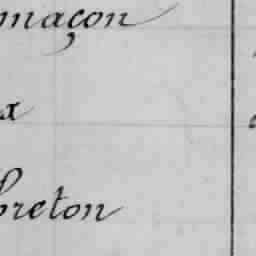 maçon
x
breton